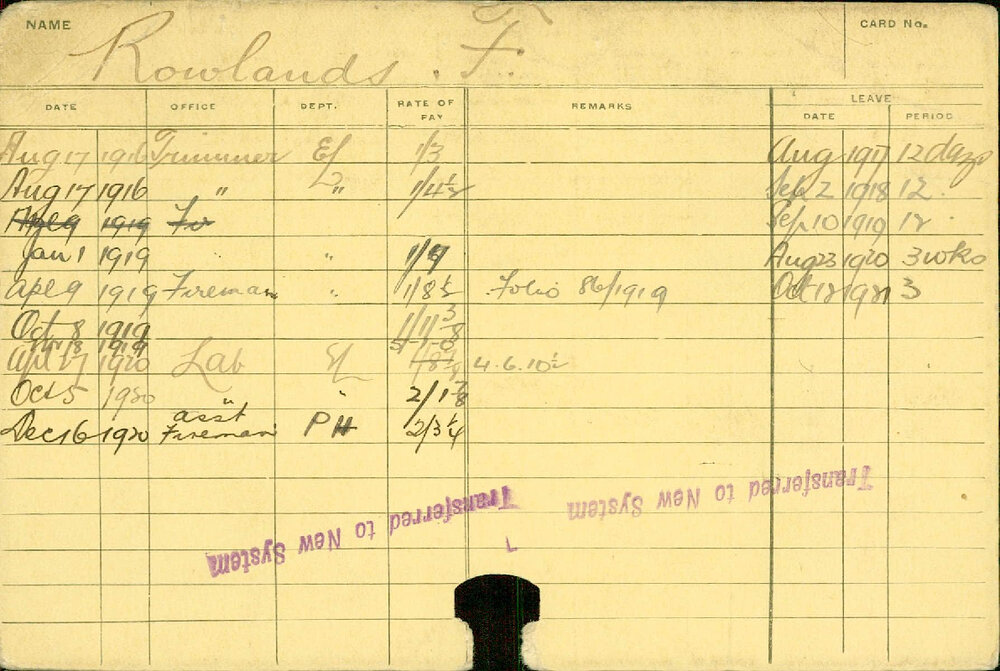 NAME Rowlands. F. CARD No.
DATE OFFICE DEPT. RATE OF PAY REMARKS LEAVE
DATE PERIOD
Aug 17 1916 Trimmer E/L 1/3 Aug 1917 12 days
Aug 17 1916 " " 1/4½ Sep 2 1918 12.
Apl 9 1919 Fir Sep 10 1919 12
Jan 1 1919 " 1/9 Aug 23 1920 3 wks
Apl 9 1919 Fireman " 1/8½ Folio 86/1919 Oct 12 1921 3
Oct 8 1919 1/11⅜
1919
Apl 27 1920 Lab E/L 4.6.10½
Oct 5 1920 " " 2/1⅞
Dec 16 1920 asst Fireman PH 2/3¼
Transferred to New System
Transferred to New System